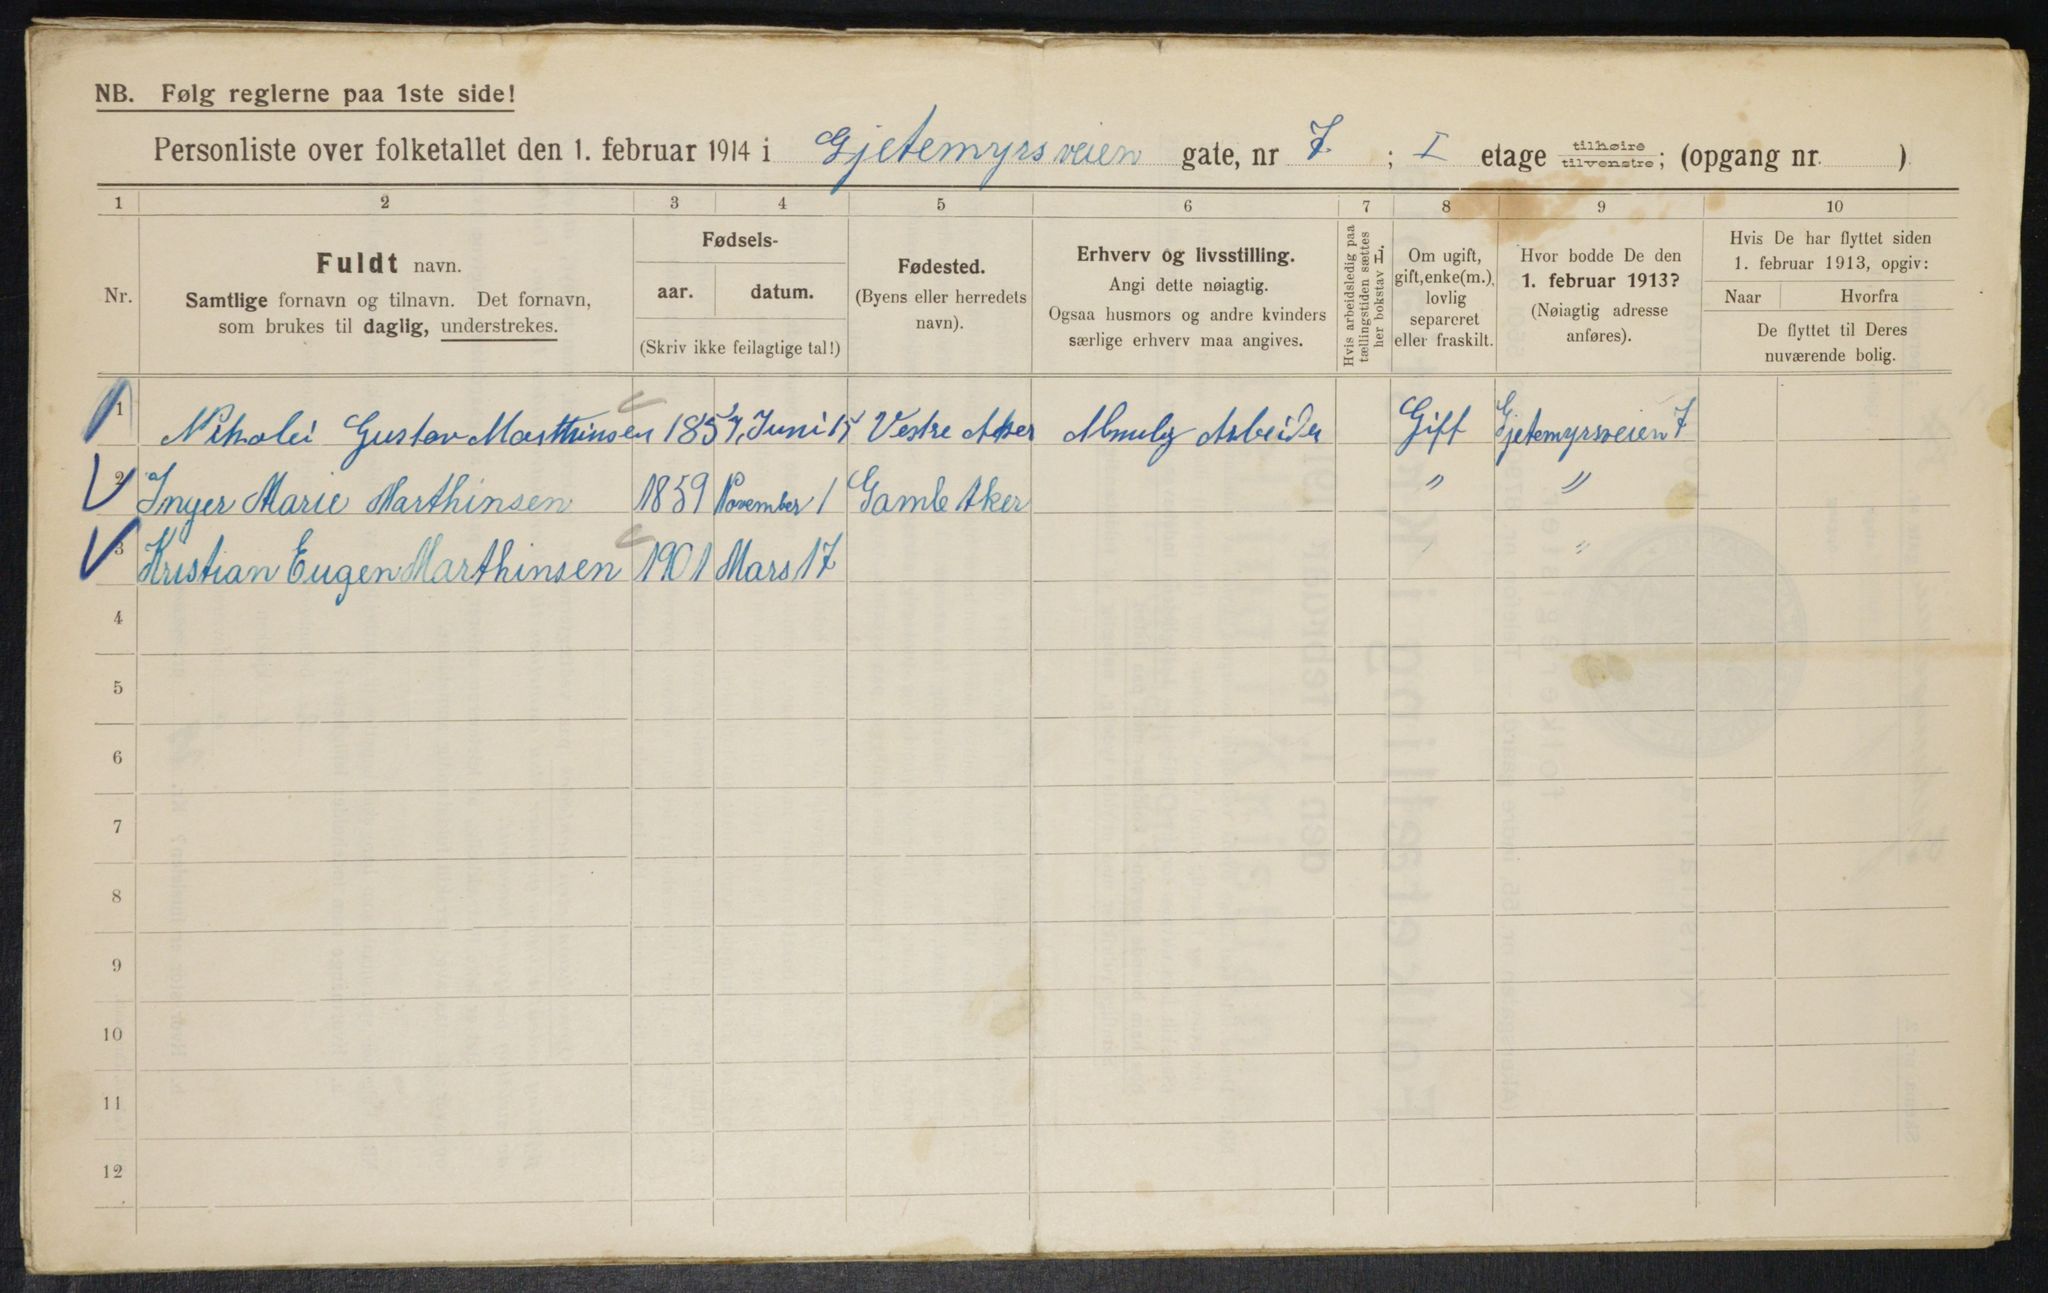 NB. Følg reglerne paa 1ste side!
Personliste over folketallet den 1. februar 1914 i Gjetemyrsveien gate, nr 7 ; I etage tilhøire tilvenstre; (opgang nr. )
1 2 3 4 5 6 7 8 9 10
Nr.
Fuldt navn.
Samtlige fornavn og tilnavn. Det fornavn,
som brukes til daglig, understrekes.
Fødsels-
aar. datum.
(Skriv ikke feilagtige tal!)
Fødested.
(Byens eller herredets
navn).
Erhverv og livsstilling.
Angi dette nøiagtig.
Ogsaa husmors og andre kvinders
særlige erhverv maa angives.
Hvis arbeidsledig paa
tællingstiden sættes
her bokstav L.
Om ugift,
gift, enke(m.),
lovlig
separeret
eller fraskilt.
Hvor bodde De den
1. februar 1913?
(Nøiagtig adresse
anføres).
Hvis De har flyttet siden
1. februar 1913, opgiv:
Naar Hvorfra
De flyttet til Deres
nuværende bolig.
1 Nikolei Gustav Marthinsen 1857 Juni 15 Vestre Aker Arbeider Gift Gjetemyrsveien 7
2 Inger Marie Marthinsen 1859 November 1 Gamle Aker " "
3 Kristian Eugen Marthinsen 1901 Mars 17 "
4
5
6
7
8
9
10
11
12